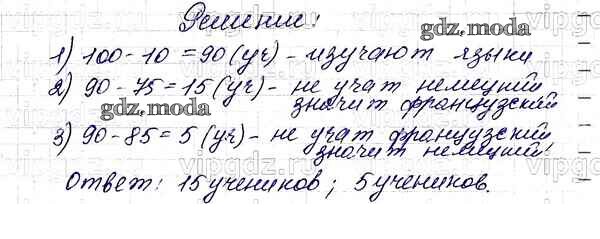 Решение!
gdz.moda
1) 100-10=90(уч) - изучают языки
2) 90-75=15(уч) - не учат немецкий
значит французский
gdz.moda
3) 90-85=5(уч) - не учат французский
значит немецкий!
Ответ: 15 учеников; 5 учеников.